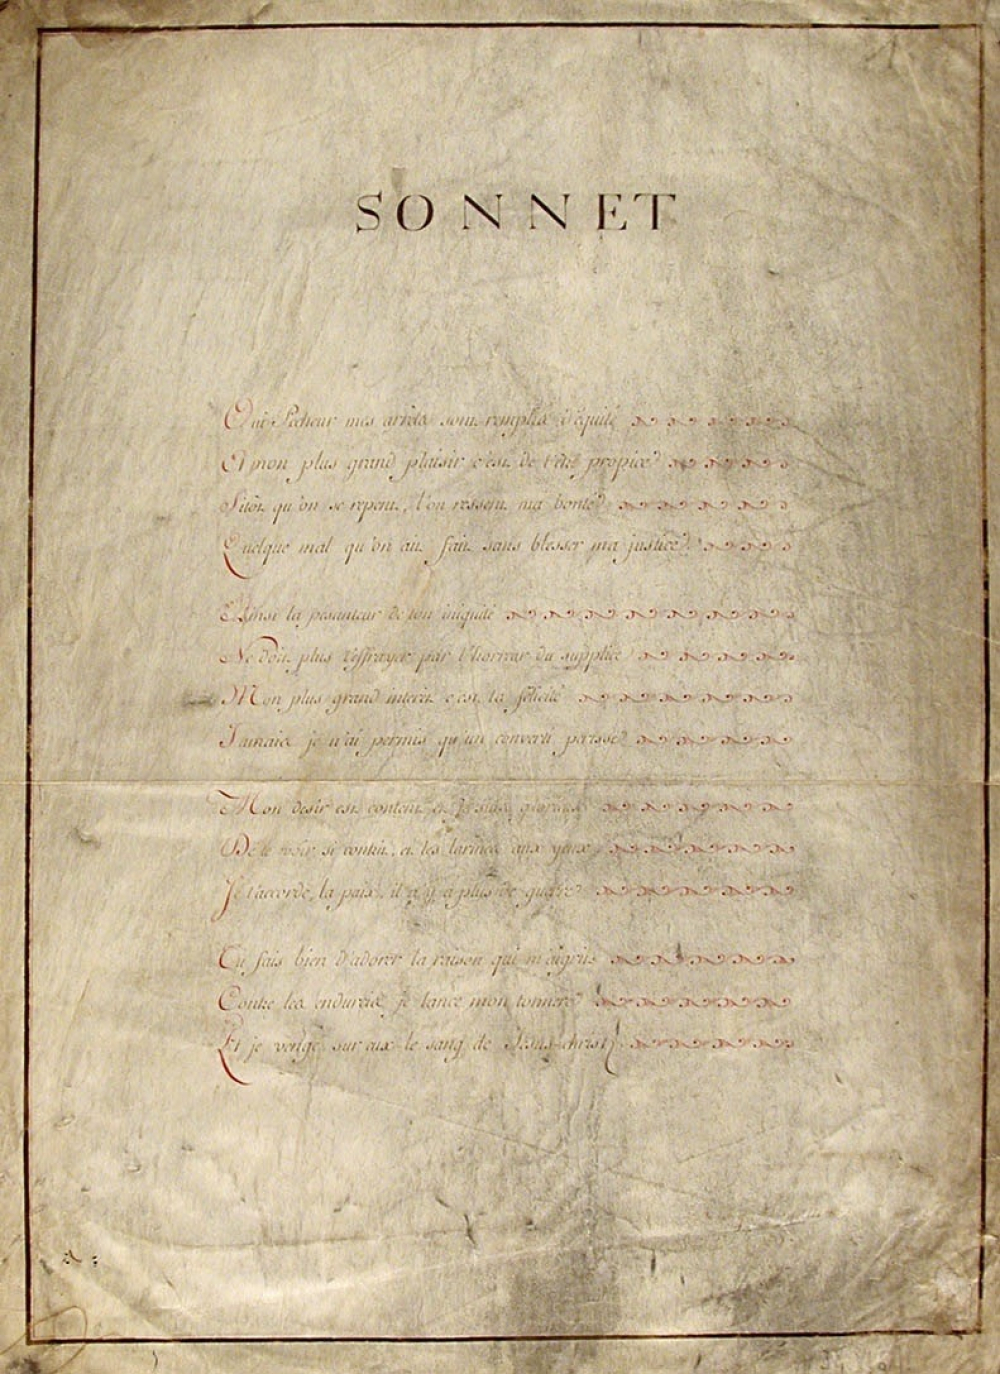 SONNET
Oüi Pécheur mes arrêts sont remplis d'équité
Et mon plus grand plaisir c'est de t'être propice
Sitôt qu'on se repent, l'on ressent ma bonté
Quelque mal qu'on ait fait sans blesser ma justice.
Ainsi la pesanteur de ton iniquité
Ne doit plus t'effrayer par l'horreur du supplice
Mon plus grand interêt c'est ta félicité
Jamais je n'ai permis qu'un converti perisse
Mon desir est content et je suis glorieux
De te voir si contrit, et les larmes aux yeux,
Je t'accorde, la paix, il n'y a plus de guerre
Tu fais bien d'adorer la raison qui m'aigrit
Contre les endurcis, je lance mon tonnere
Et je venge sur eux le sang de Jesus-christ.